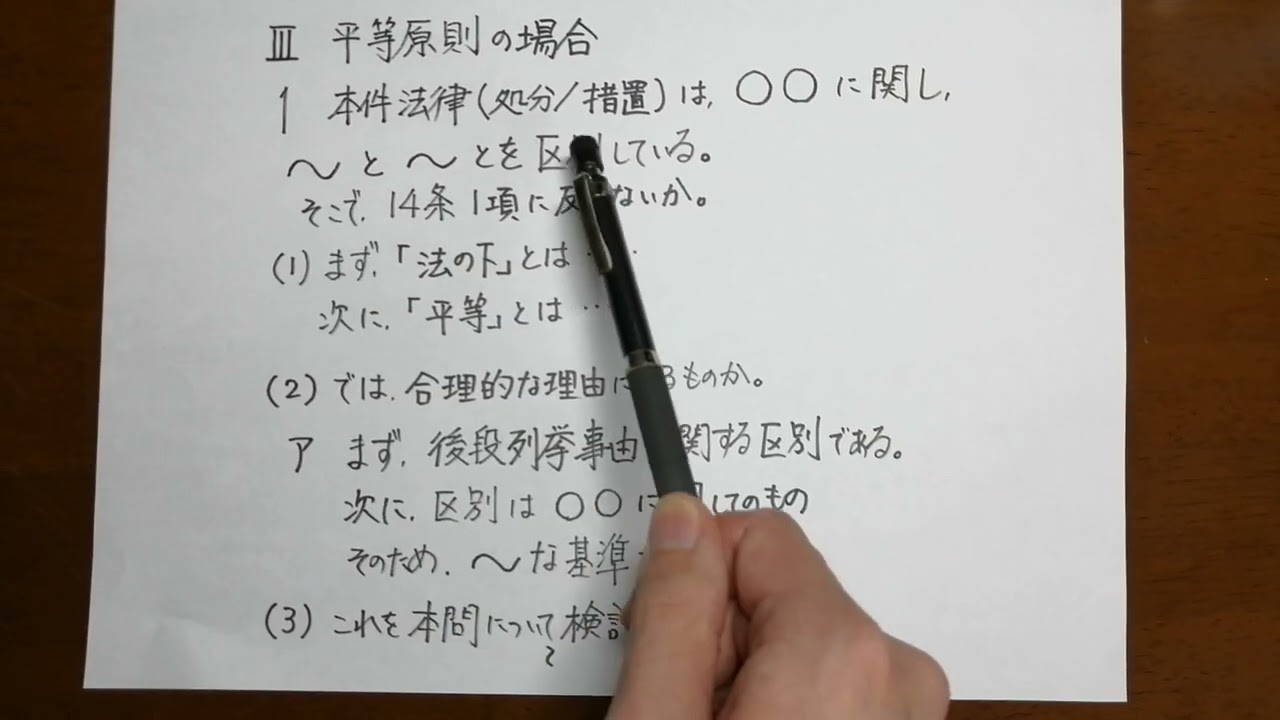 Ⅲ 平等原則の場合
1 本件法律(処分/措置)は,○○に関し,
〜と〜とを区別している。
そこで,14条1項に反 ないか。
(1)まず,「法の下」とは・・
次に,「平等」とは・・
(2)では,合理的な理由に るものか。
ア まず,後段列挙事由 関する区別である。
次に,区別は○○に してのもの
そのため,〜な基準
(3)これを本問について検討